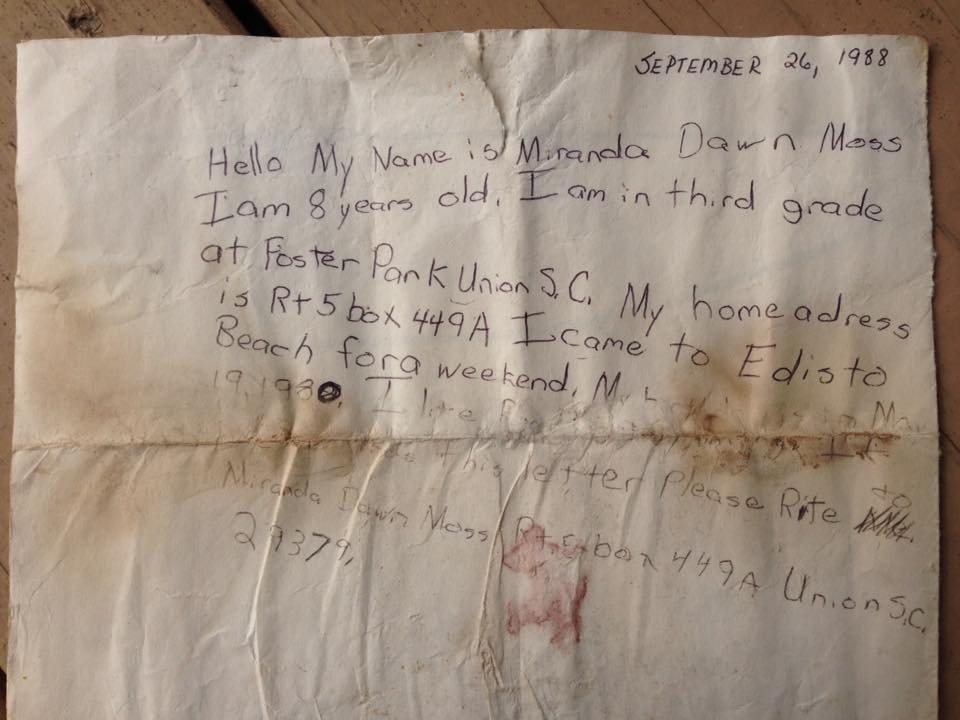 SEPTEMBER 26, 1988
Hello My Name is Miranda Dawn Moss
I am 8 years old. I am in third grade
at Foster Park Union S.C. My home adress
is Rt 5 box 449A I came to Edisto
Beach for a weekend. My
19, 1980. I like
this letter Please Rite to
Miranda Dawn Moss Rt 5 box 449A Union S.C.
29379,